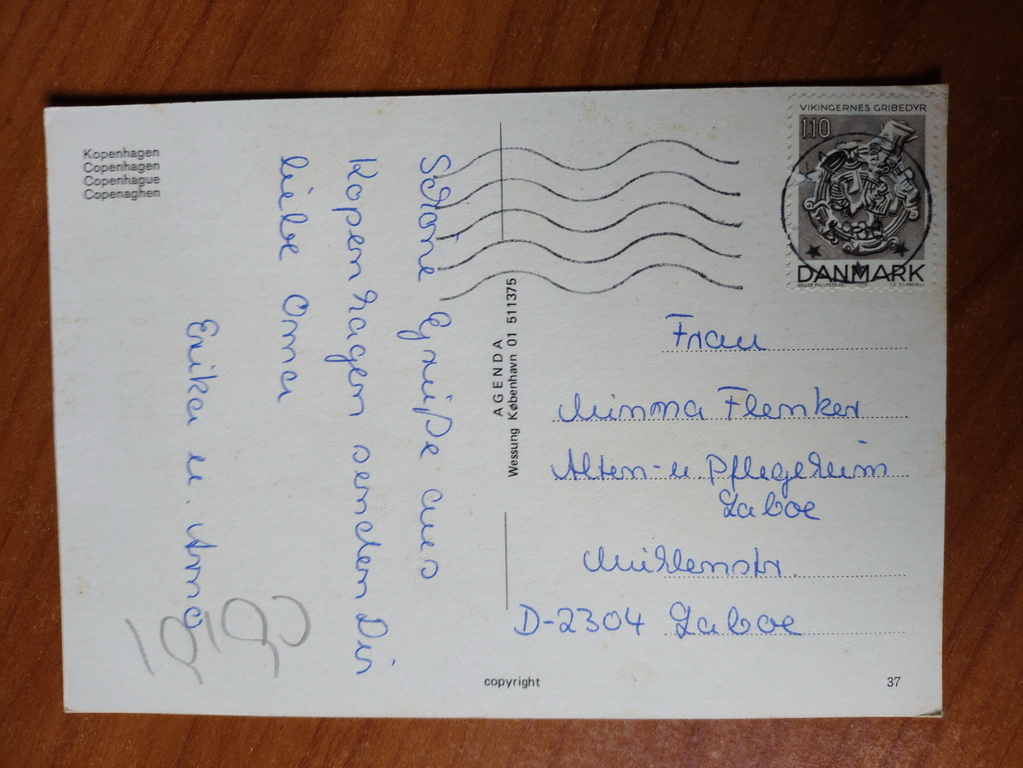 Kopenhagen
Copenhagen
Copenhague
Copenaghen
Schöne Grüße aus
Kopenhagen senden Dir
liebe Oma
Erika u. Arno
AGENDA
Wessung København 01 511375
VIKINGERNES GRIBEDYR
110
DANMARK
Frau
Minna Flenker
Alten- u Pflegeheim
Laboe
Mühlenstr.
D-2304 Laboe
copyright
37